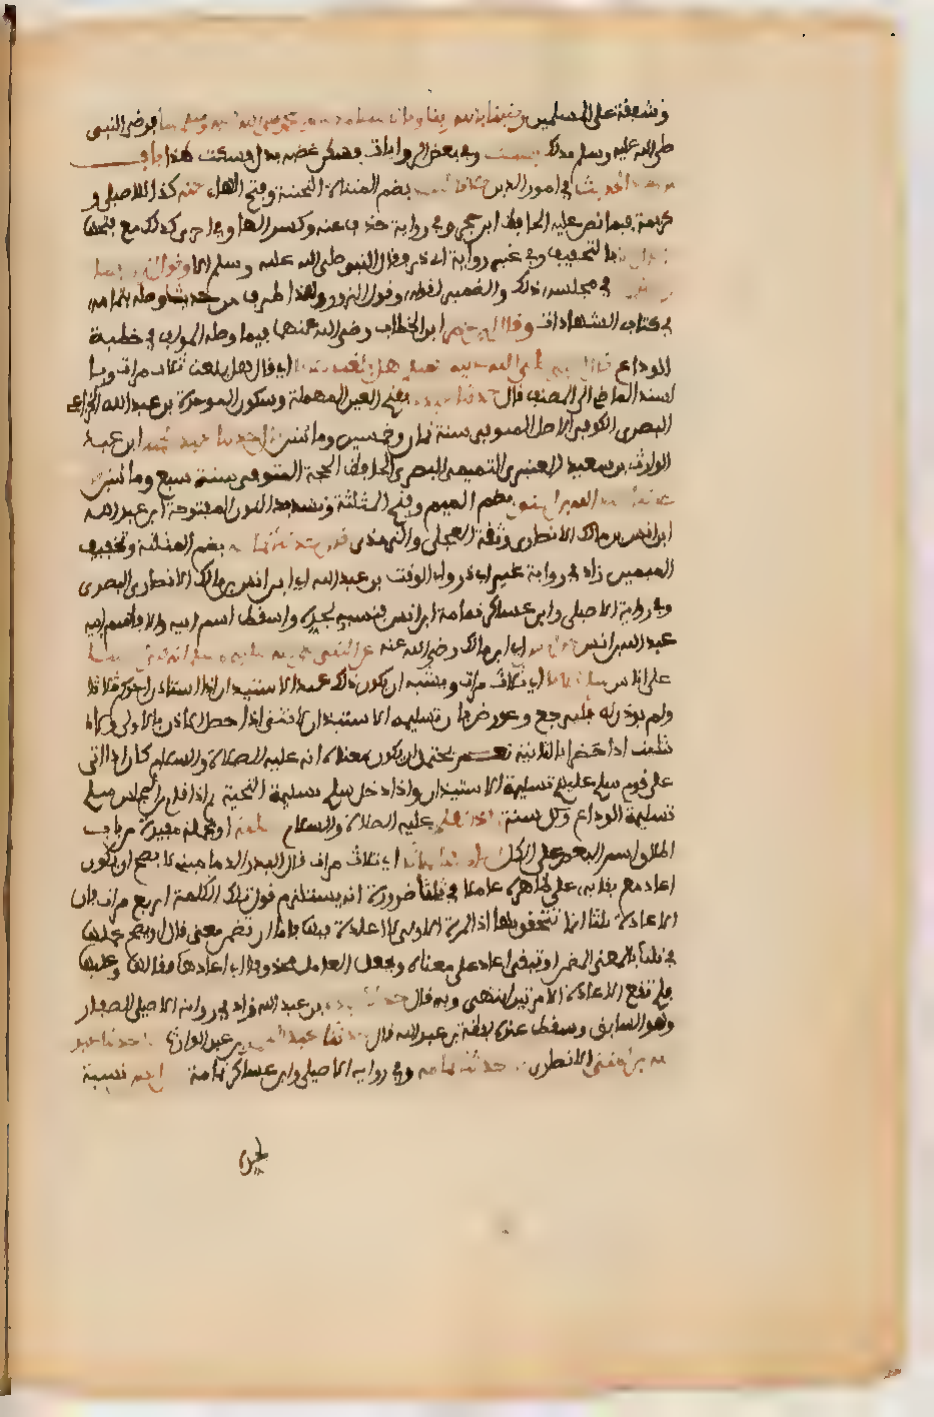 وشفقة على المسلمين رضينا بالله ربا وبالاسلام دينا وبمحمد صلى الله عليه وسلم نبيا فرضي النبي
صلى الله عليه وسلم بذلك فسكت وفي بعض الروايات فسكن غضبه بدل فسكت هذا باب
من اعاد الحديث في امور الدين ثلاثا ليفهم بضم المثناة التحتية وفتح الهاء عنه كذا للاصيلي و
كريمة فيما نص عليه الحافظ ابن حجر وفي رواية حذف عنه وكسر الهاء وفي اخرى كذلك مع فتحها
بالتخفيف وفي غير رواية ابي ذر فقال النبي صلى الله عليه وسلم الا وقول الزور فما
زال في مجلسه ذلك والضمير لقوله وقول الزور وهذا طرف من حديث وصله بتمامه
في كتاب الشهادات وقال ابن عمر ابن الخطاب رضي الله عنهما فيما وصله المولف في خطبة
الوداع قال النبي صلى الله عليه وسلم هل بلغت ثلاثا اي قال هل بلغت ثلاث مرات وبا
لسند الماضي الى المصنف قال حدثنا عبدة بفتح العين المهملة وسكون الموحدة بن عبد الله الخزاعي
البصري الكوفي الاصل المتوفى سنة ثمان وخمسين ومائتين قال حدثنا عبد الصمد ابن عبد
الوارث بن سعيد العنبري التميمي البصري الحافظ الحجة المتوفى سنة سبع ومائتين
عبد الله بن المثنى بضم الميم وفتح المثلثة وتشديد النون المفتوحة ابن عبد الله
ابن انس بن مالك الانصاري وثقه العجلي والترمذي قال حدثنا ثمامة بضم المثلثة وتخفيف
الميمين زاد في رواية غير ابي ذر وابي الوقت بن عبد الله اي ابن انس بن مالك الانصاري البصري
وفي رواية الاصيلي وابن عساكر ثمامة ابن انس فنسبه لجده واسقط اسم ابيه والا فاسم ابيه
عبد الله بن انس عن انس اي ابن مالك رضي الله عنه عن النبي صلى الله عليه وسلم انه كان اذا سلم
على اناس سلم ثلاثا اي ثلاث مرات ويشبه ان يكون ذلك عند الاستيذان اذا استاذن احدكم ثلاثا
ولم يوذن له فليرجع وعورض بان تسليمه الاستيذان لا تثنى اذا حصل الاذن بالاولى ولا
تثلث اذا حصل بالثانية نعم يحتمل ان يكون معناه انه عليه الصلاة والسلام كان اذا اتى
على قوم سلم عليهم تسليمة الاستيذان واذا دخل سلم تسليمة التحية ثم اذا قام من المجلس سلم
تسليمة الوداع وكل سنة واذا تكلم عليه الصلاة والسلام بكلمة اي بجملة مفيدة من باب
اطلاق اسم البعض على الكل اعادها ثلاثا اي ثلاث مرات قال البدر الدماميني لا يصح ان يكون
اعاد مع بقائه على ظاهره عاملا في ثلثا ضرورة انه يستلزم قول تلك الكلمة اربع مرات فان
الاعادة ثلثا انما تتحقق بها اذ المرة الاولى لا اعادة فيها فاما ان تضمن معنى قال او يصح عملها
في ثلثا بالمعنى المضمن او تبقى اعاد على معناه ويجعل العامل محذوفا اي اعادها فقالها وعليها
فلم تقع الاعادة الا مرتين انتهى وبه قال حدثنا عبدة بن عبد الله زاد في رواية الاصيلي الصفار
وهو السابق وسقط عنده لفظة بن عبد الله قال حدثنا عبد الصمد بن عبد الوارث قال حدثنا عبد
الله بن المثنى الانصاري قال حدثنا ثمامة وفي رواية الاصيلي وابن عساكر ثمامة ابن انس نسبة
لجده